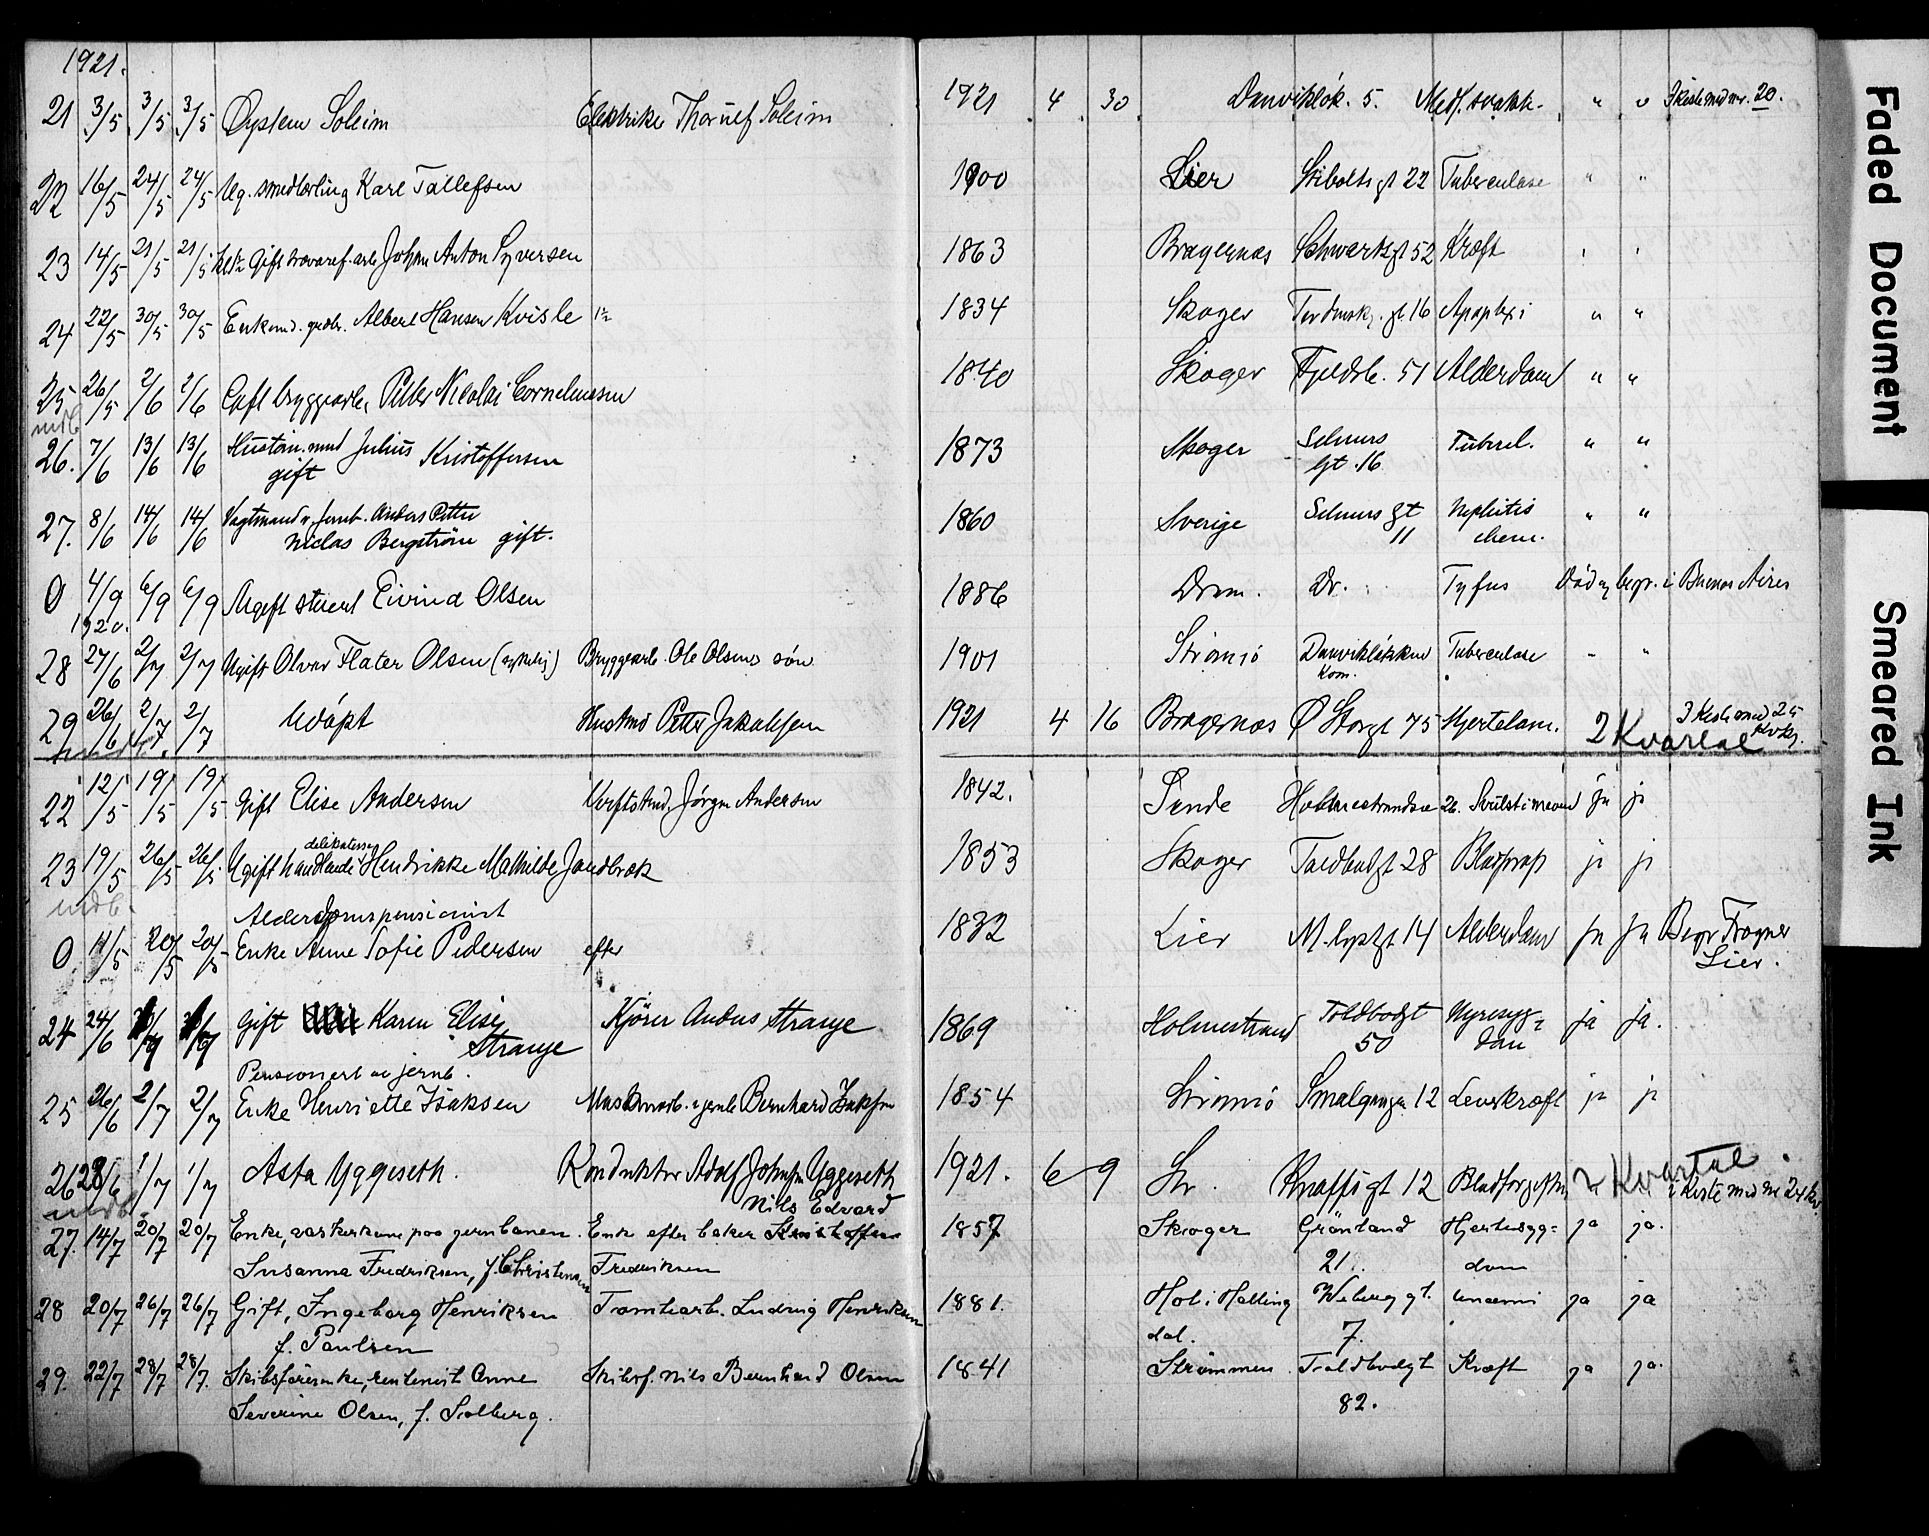 1921.
21 3/5 3/5 3/5 Øystein Soleim Elektriker Thorulf Soleim 1921 4 30 Danvikløk. 5. Medf. svakh. " " I kiste med nr. 20.
22 16/5 24/5 24/5 Ug. smedlærling Karl Tallefsen 1900 Lier Skibolts gt 22 Tuberculose " "
23 14/5 21/5 21/5 Gift arb. Johan Anton Syversen 1863 Bragernæs Schwartzgt 52 Kræft " "
24 22/5 30/5 30/5 Enkem. Albert Hansen Kvisle 1834 Skoger gt. 16 Apoplexi " "
25 26/5 2/6 2/6 Gift bryggearb. Petter Nicolai Corneliussen 1840 Skoger Fjeldsb. 51 Alderdom " "
26. 7/6 13/6 13/6 Julius Kristoffersen 1873 Skoger Selmers Tuberl. " "
gift gt. 16
27. 8/6 14/6 14/6 Vagtmand v. Jernb. Anders Petter 1860 Sverige Selmers gt Nephritis " "
Niclas Bergström gift. 11 chron.
0 4/9 6/9 6/9 Ugift stuert Eivind Olsen 1886 Dram. Dr. Tyfus Død og begr. i Buenos Aires
1920.
28 27/6 2/7 2/7 Ugift Olvar Flater Olsen Bryggearb. Ole Olsens søn 1901 Strømsø Danvikløkken Tuberculose " "
Kom.
29 26/6 2/7 2/7 Udøpt Hustru Petter Jakobsen 1921 4 16 Bragernæs Ø Storgt 75 Hjertelam. I kiste med 25
2 Kvartal kvkj.
22 12/5 19/5 19/5 Gift Elise Andersen Jørgen Andersen 1842. Sande Holmestrandsv 26. ja ja
delikatesse
23 19/5 26/5 26/5 Ugift handlende Hendrikke Mathilde Sandbræk 1853 Skoger Toldbodgt 28 ja ja
indb.
Alderdomspensionist
0 11/5 20/5 20/5 Enke Anne Sofie Pedersen efter 1832 Lier gt 14 Alderdom ja ja Begr Frogner
Lier.
24 24/6 Gift Karen Elise Kjører Anders Strange 1869 Holmestrand Toldbodgt Nyresyg= ja ja.
Strange 50 dom
Pensionert v jernb.
25 26/6 2/7 2/7 Enke Henriette Isaksen Bernhard Isaksen 1854 Strømsø Smalgangen 12 Leverkræft ja ja
26 28/6 1/7 1/7 Asta Yggeseth. Konduktør Adolf Johnsen Yggeseth 1921. 6 9 Str. gt 12 Blodforgiftn. 2 Kvartal.
i kiste med nr 24
indb. Nils Edvard
27. 14/7 20/7 20/7 Enke, vaskerkone paa jernbanen. Enke efter baker 1857 Skoger Grönland Hjertesyg= ja ja.
Susanna Fredriksen, f. Christensen Fredriksen 21. dom
28 20/7 26/7 26/7 Gift, Ingeborg Henriksen Tomtearb. Ludvig Henriksen 1881. Hol i Halling Wiberg gt. Uræmi ja ja
f. Paulsen dal. 7.
29. 22/7 28/7 28/7. Skibsførerenke, rentenist Anne Skibsf. Nils Bernhard Olsen 1841 Strømmen Toldbodgt Kræft ja ja.
Severine Olsen, f. Solberg. 82.
Faded Document
Smeared Ink